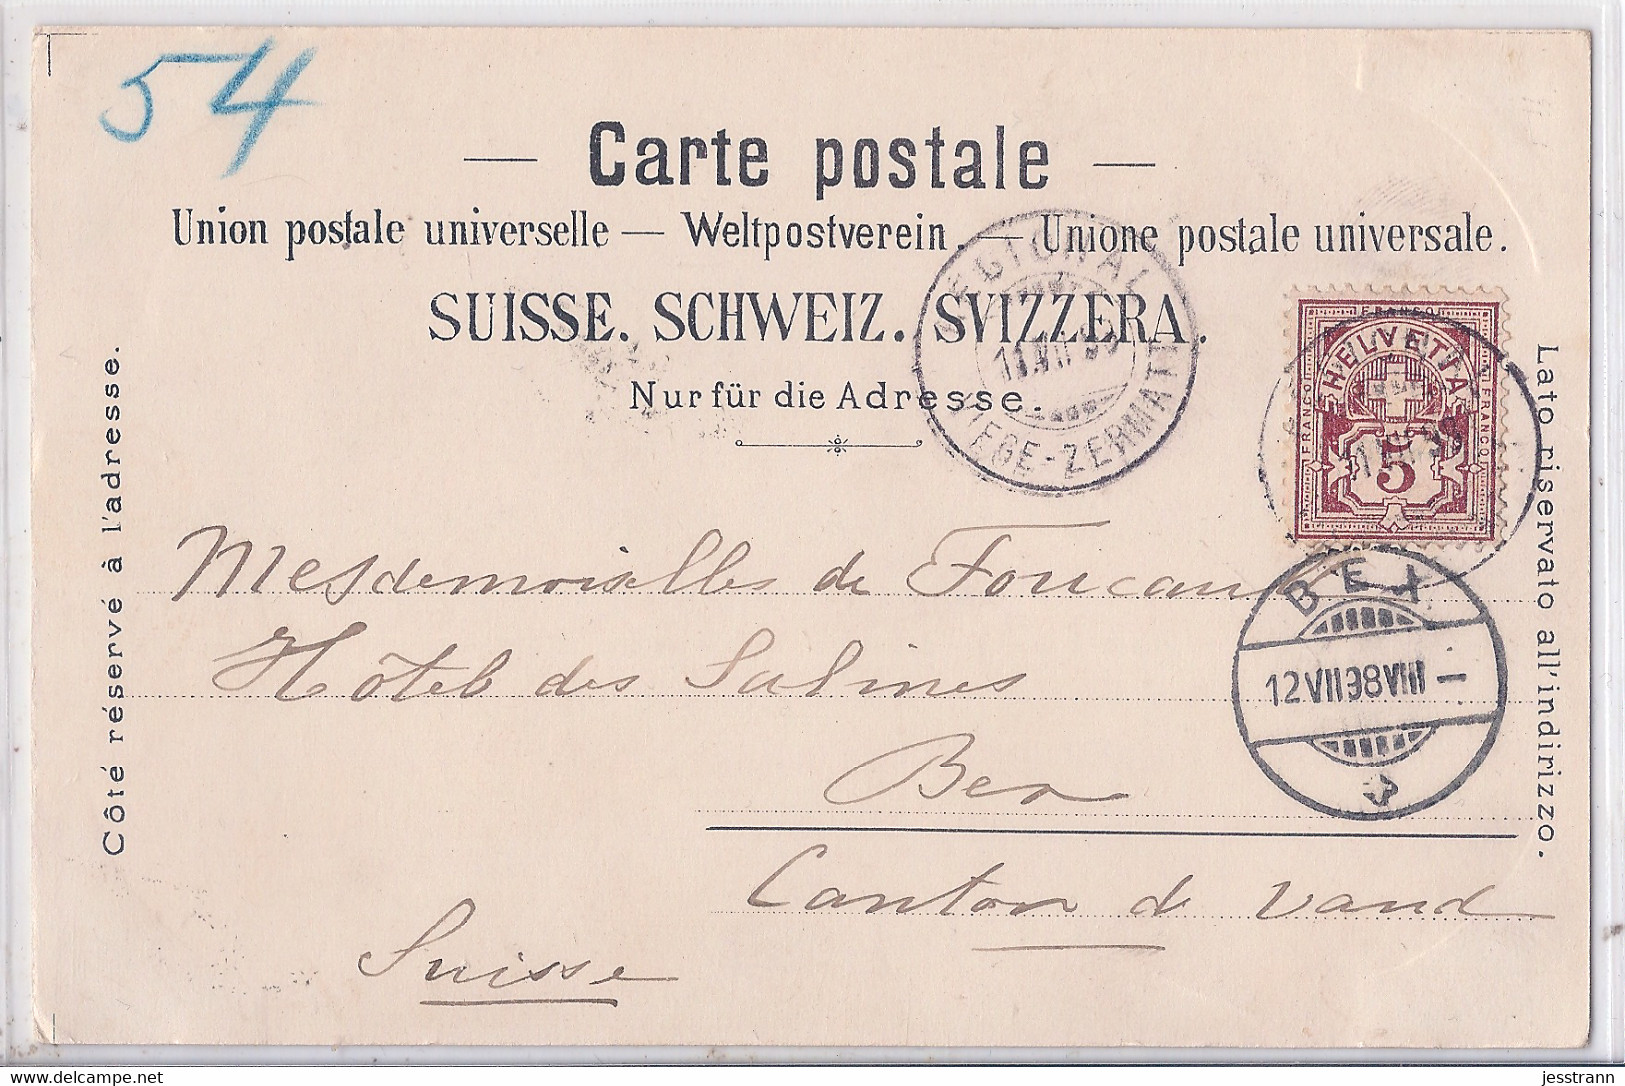 54
— Carte postale —
Union postale universelle — Weltpostverein. — Unione postale universale.
SUISSE. SCHWEIZ. SVIZZERA.
Nur für die Adresse.
Côté réservé à l'adresse.
Lato riservato all'indirizzo.
REGIONAL
11.VII 98
VIEGE-ZERMATT
FRANCO
HELVETIA
FRANCO
FRANCO
5
11 VII 98
BEX
12 VII 98 VIII –
Mesdemoiselles de Foucault
Hôtel des Salines
Bex
Canton de Vaud
Suisse
jesstrann
delcampe.net